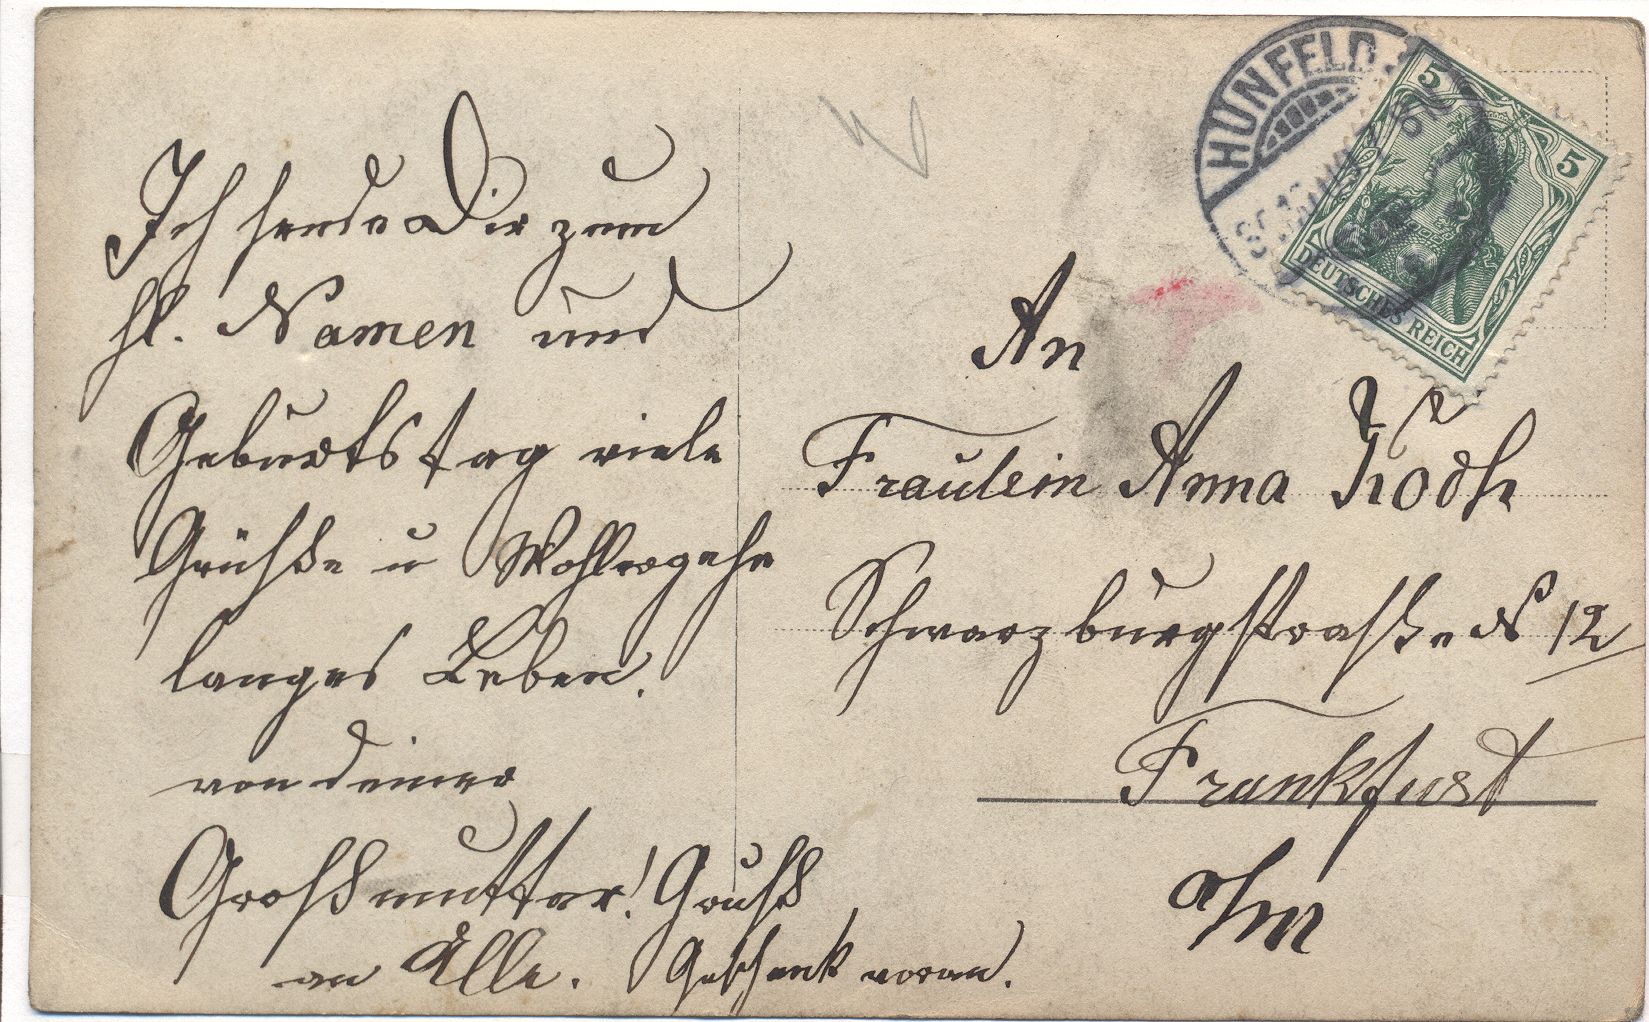 Ich sende Dir zum
hl. Namen und
Geburtstag viele
Grüße u Wohlergehn
langes Leben.
von deiner
Großmutter! Gruß
an Alle. Geschenk voran.
HÜNFELD
5
5
DEUTSCHES REICH
An
Fräulein Anna Koch
Schwarzburgstraße N 12
Frankfurt
a/m